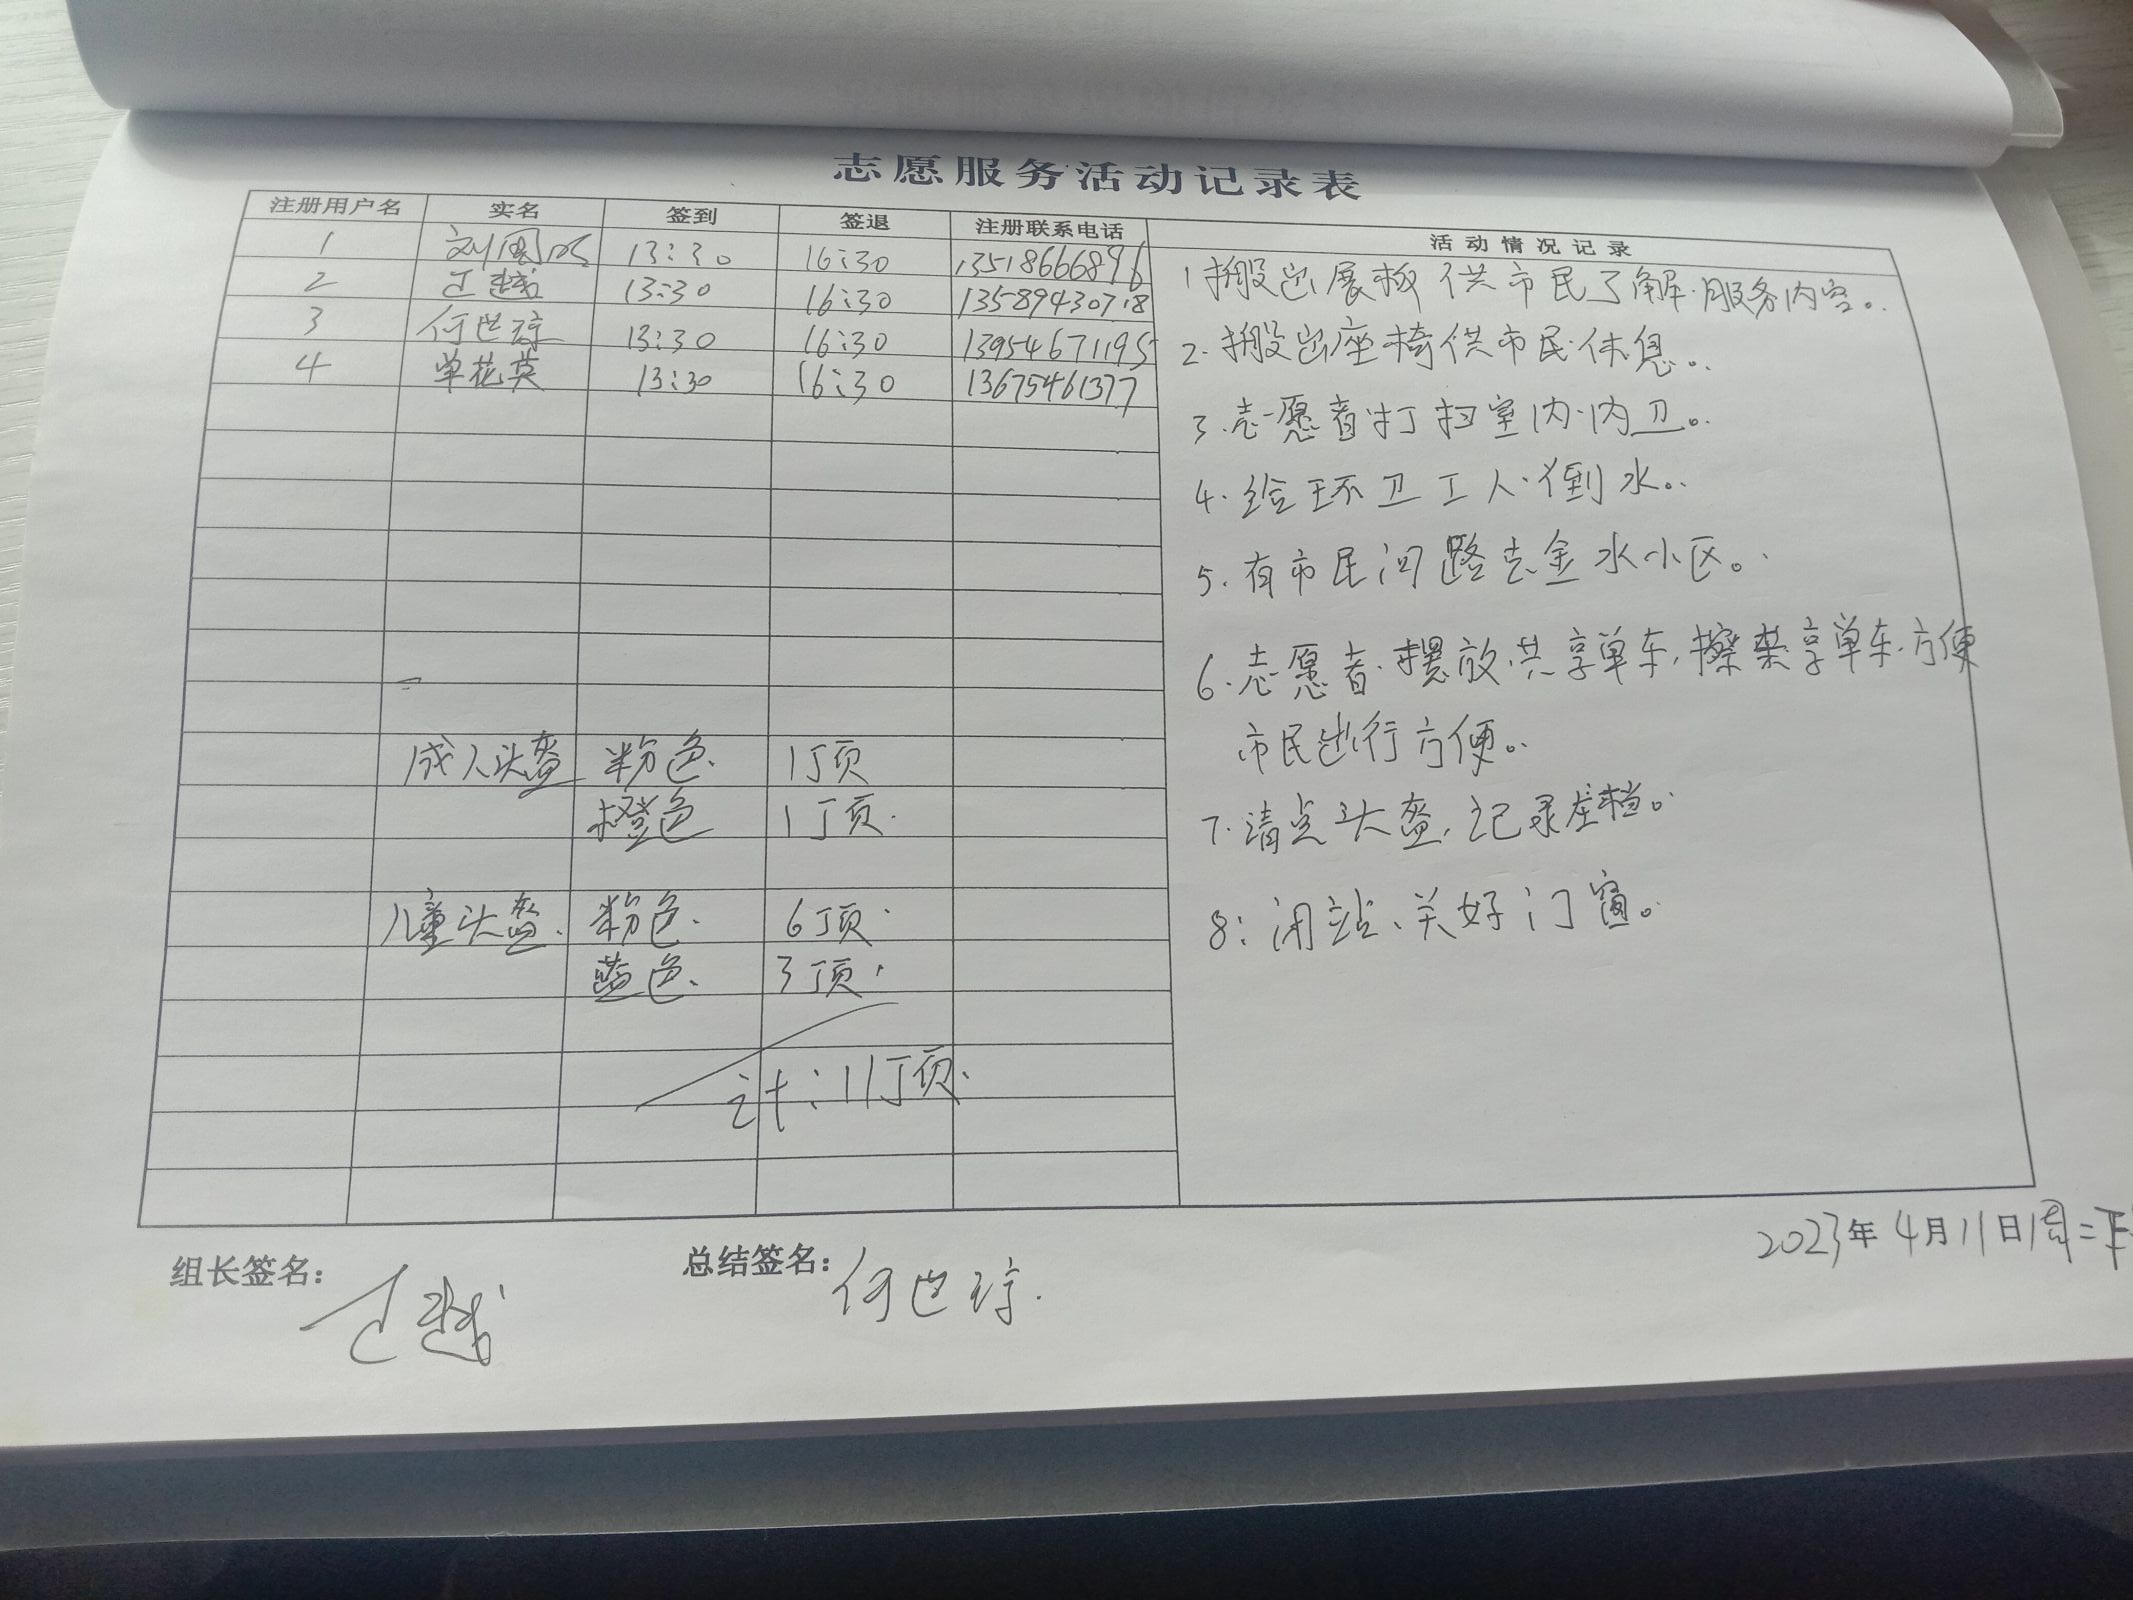 志愿服务活动记录表
注册用户名 实名 签到 签退 注册联系电话 活动情况记录
1 刘国 13:30 16:30 13518666896
2 王越 13:30 16:30 13589430718
3 何世琼 13:30 16:30 13954671195
4 单花英 13:30 16:30 13675461377
成人头盔 粉色 1顶
橙色 1顶
儿童头盔 粉色 6顶
蓝色 3顶
计:11顶
1 搬出展板供市民了解服务内容。
2. 搬出座椅供市民休息。
3. 志愿者打扫室内内卫。
4. 给环卫工人倒水。
5. 有市民问路去金水小区。
6. 志愿者摆放共享单车,擦共享单车方便
市民出行方便。
7. 清点头盔,记录存档。
8: 闭站、关好门窗。
组长签名: 王越 总结签名: 何世琼
2023年4月11日周二下